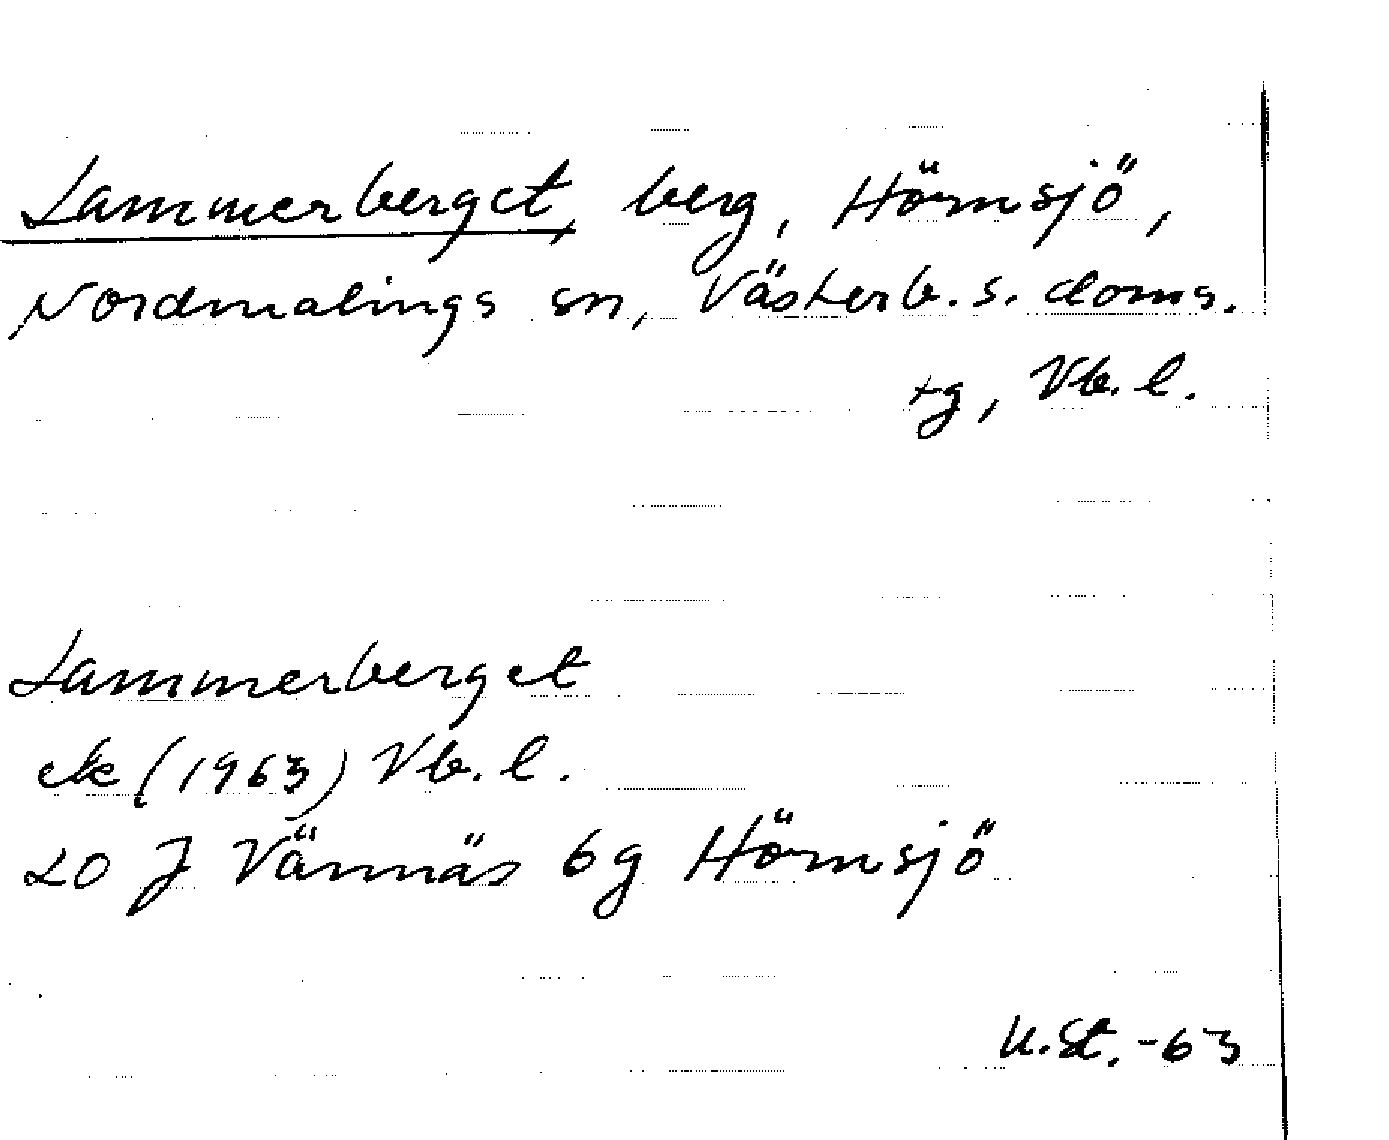 Lammerberget, berg, Hörnsjö,
Nordmalings sn, Västerb. s. doms.
tg, Vb. l.
Lammerberget
ek (1963) Vb. l.
20 J Vännäs 6g Hörnsjö
U. St. -63